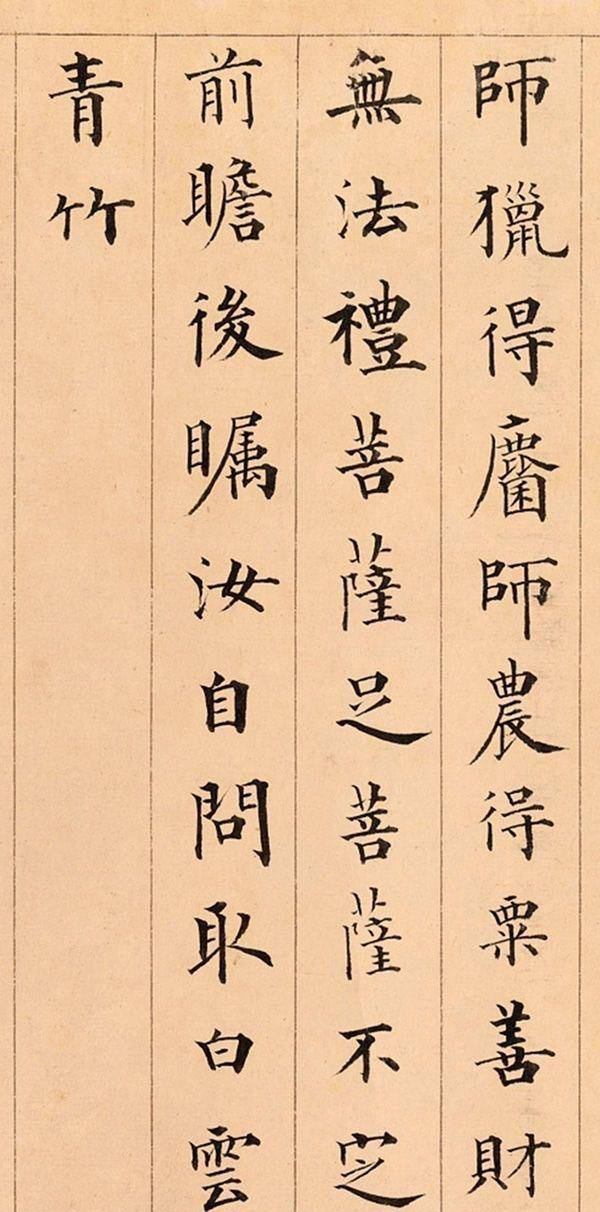 師獵得麕師農得粟善財
無法禮菩薩足菩薩不㝎
前瞻後矚汝自問取白雲
青竹